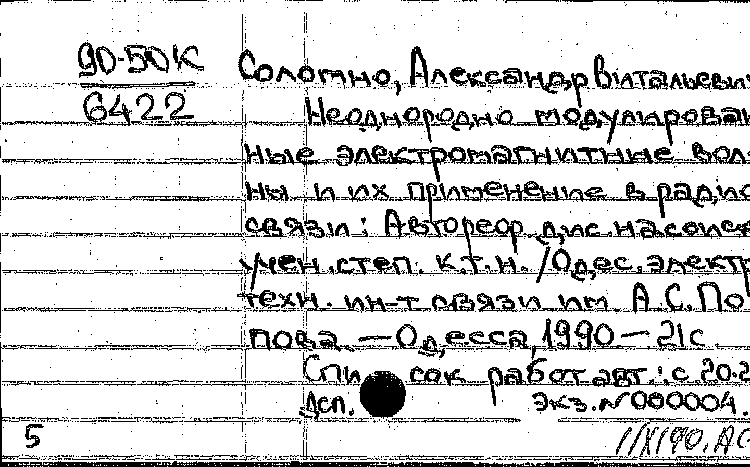 90-50К
6422
Соломно, Александр Витальеви
Неоднородно модулирован
ные электромагнитные вол
ны и их применение в радио
связи: Автореф. дис. на соиск
учен. степ. к.т.н. / Одес. электр
техн. ин-т связи им. А.С. По
пова. — Одесса, 1990 — 21с.
Список работ авт.: с 20-2
Дсп. Экз. №000004.
5 11/XI 90. АС